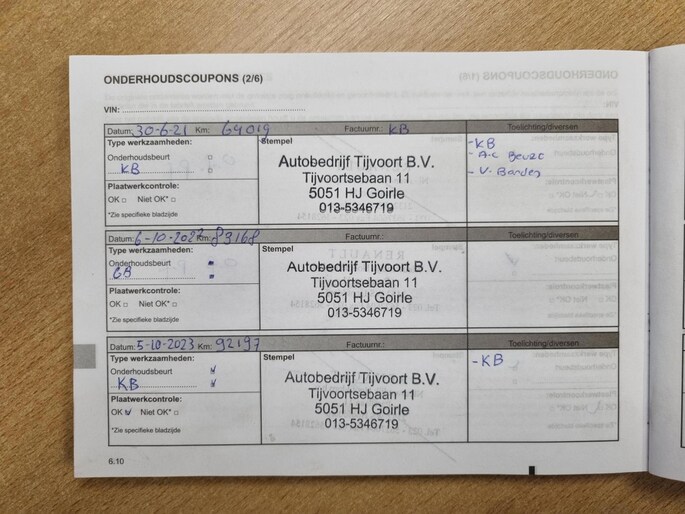 ONDERHOUDSCOUPONS (2/6)
VIN:
Datum: 30-6-21 Km: 64019 Factuurnr.: KB Toelichting/diversen
Type werkzaamheden: Stempel
Onderhoudsbeurt
KB
Plaatwerkcontrole:
OK Niet OK*
*Zie specifieke bladzijde
Autobedrijf Tijvoort B.V.
Tijvoortsebaan 11
5051 HJ Goirle
013-5346719
-KB
- A.C Beurt
- V. Banden
Datum: 6-10-2022 Km: 83168 Factuurnr.: Toelichting/diversen
Type werkzaamheden: Stempel
Onderhoudsbeurt
GB
Plaatwerkcontrole:
OK Niet OK*
*Zie specifieke bladzijde
Autobedrijf Tijvoort B.V.
Tijvoortsebaan 11
5051 HJ Goirle
013-5346719
Datum: 5-10-2023 Km: 92197 Factuurnr.: Toelichting/diversen
Type werkzaamheden: Stempel
Onderhoudsbeurt
KB
Plaatwerkcontrole:
OK Niet OK*
*Zie specifieke bladzijde
Autobedrijf Tijvoort B.V.
Tijvoortsebaan 11
5051 HJ Goirle
013-5346719
-KB
6.10